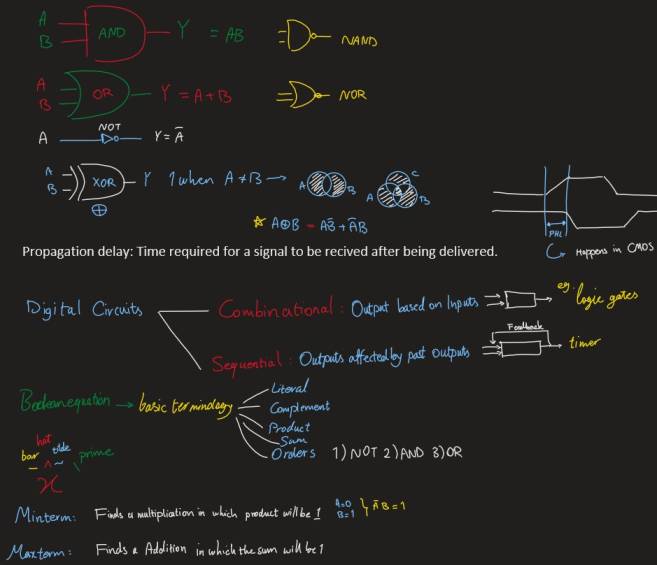 A B AND Y = AB NAND
A B OR Y = A + B NOR
A NOT Y = Ā
A B XOR Y 1 when A ≠ B → A B A B C
⊕
☆ A⊕B = AB̄ + ĀB
PHL
Happens in CMOS
Propagation delay: Time required for a signal to be recived after being delivered.
Digital Circuits
Combinational : Output based on Inputs → → eg. logic gates
Sequential : Outputs affected by past outputs Feedback → timer
Boolean equation → basic terminology
Literal
Complement
Product
Sum
Orders 1) NOT 2) AND 3) OR
hat
bar tilde prime
− ^ ~ \
x
Minterm: Finds a multiplication in which product will be 1 A=0 B=1 } ĀB = 1
Maxterm: Finds a Addition in which the sum will be 1